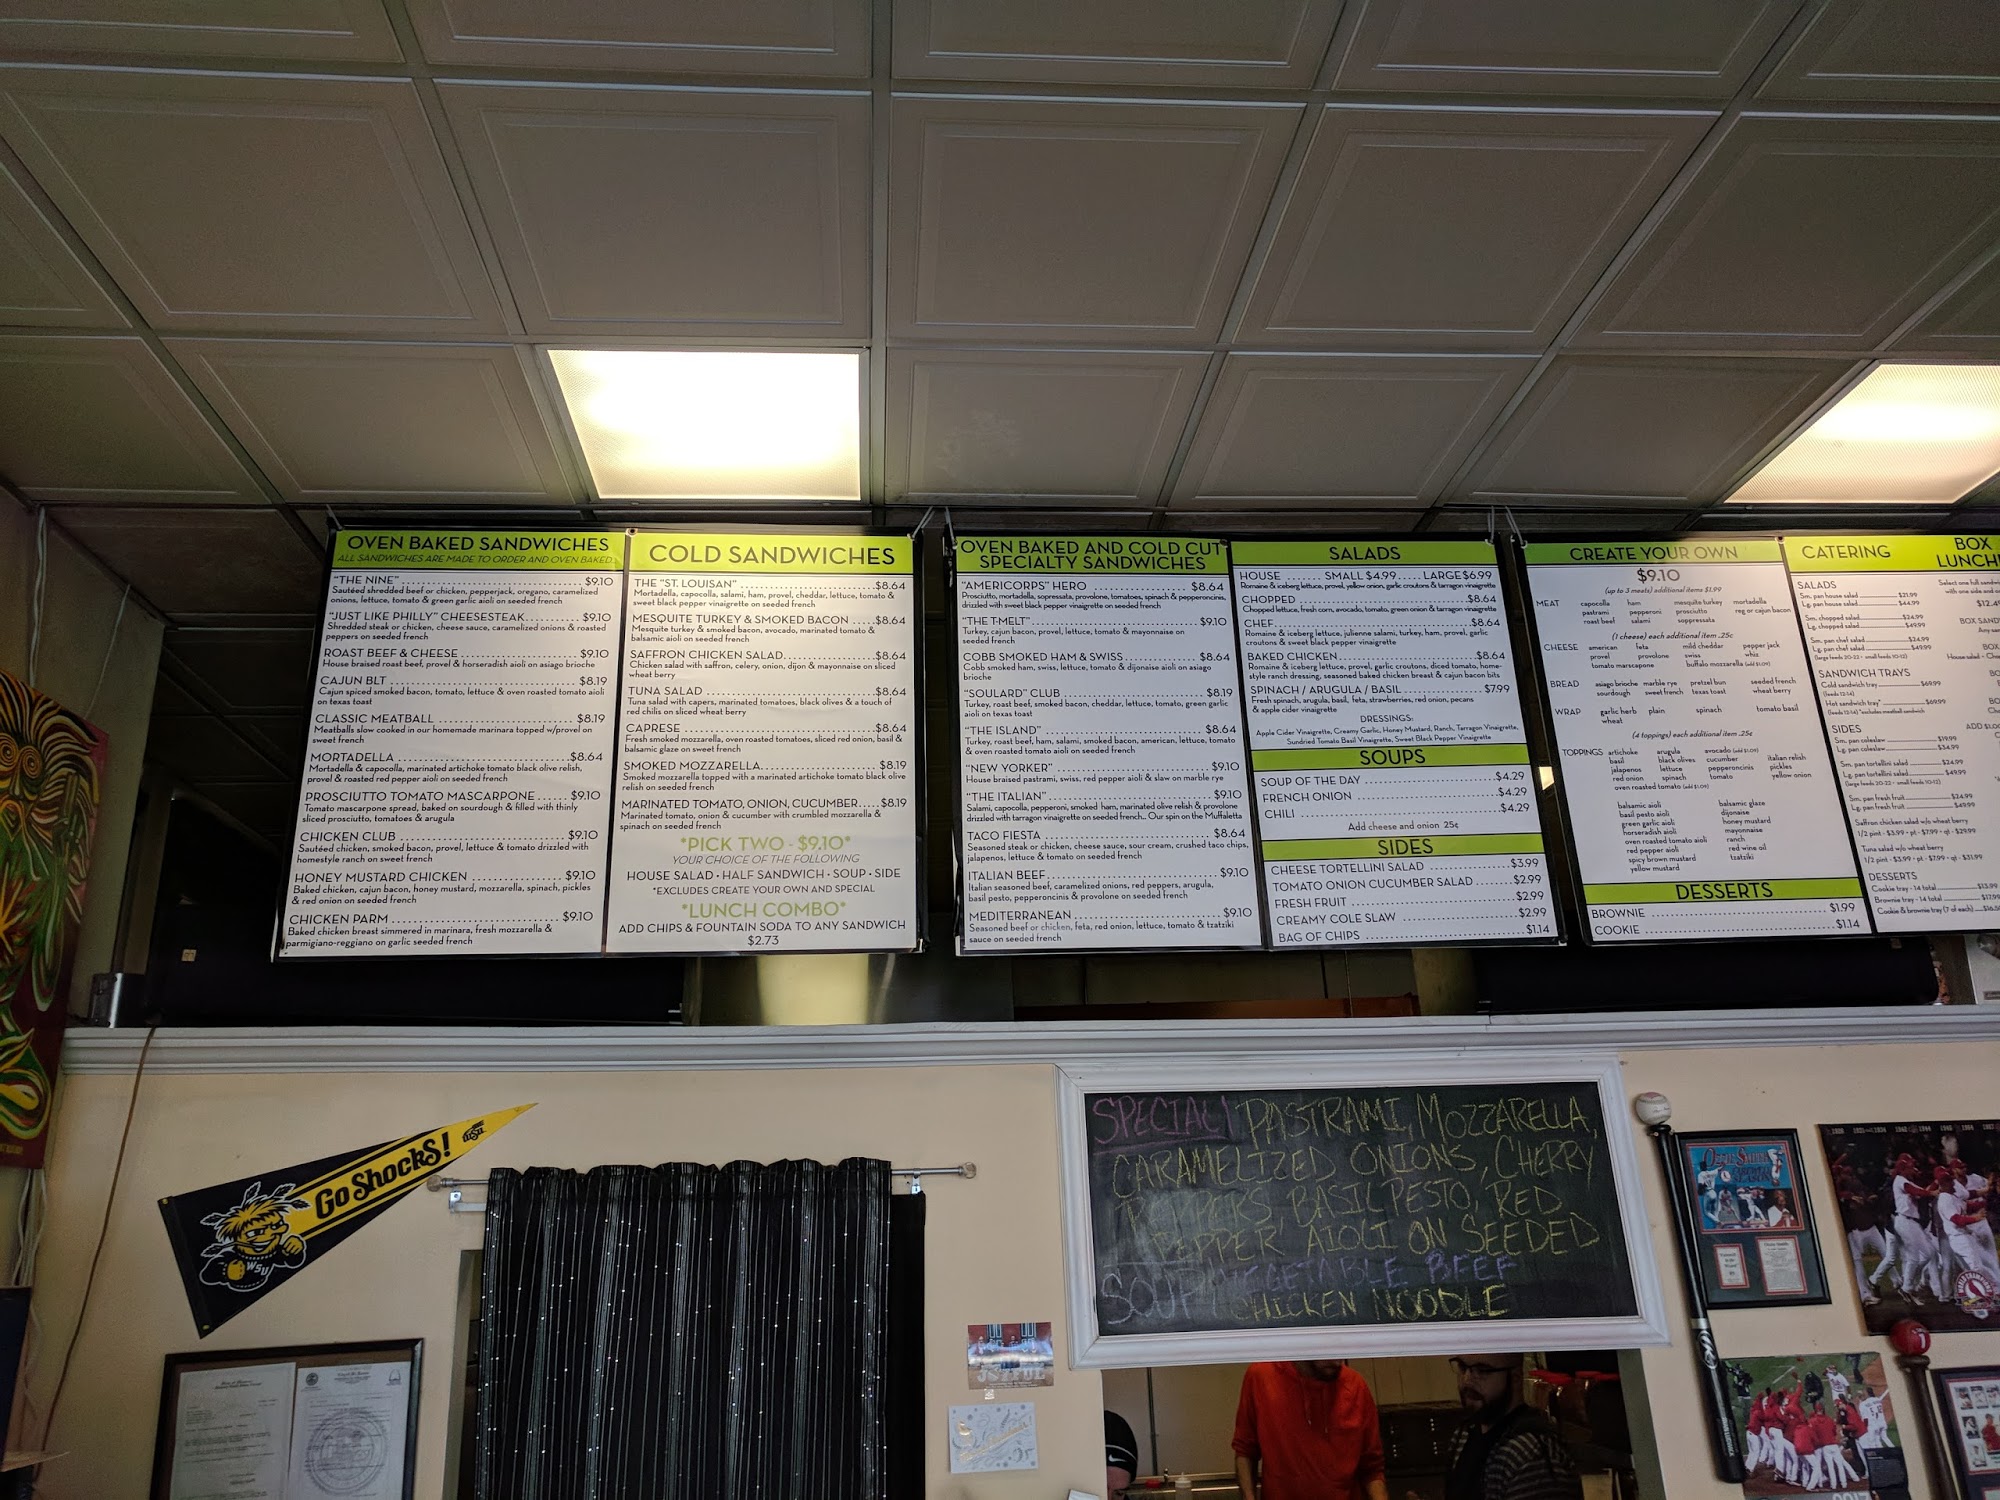 OVEN BAKED SANDWICHES
ALL SANDWICHES ARE MADE TO ORDER AND OVEN BAKED
"THE NINE" $9.10
Sautéed shredded beef or chicken, pepperjack, oregano, caramelized
onions, lettuce, tomato & green garlic aioli on seeded french
"JUST LIKE PHILLY" CHEESESTEAK $9.10
Shredded steak or chicken, cheese sauce, caramelized onions & roasted
peppers on seeded french
ROAST BEEF & CHEESE $9.10
House braised roast beef, provel & horseradish aioli on asiago brioche
CAJUN BLT $8.19
Cajun spiced smoked bacon, tomato, lettuce & oven roasted tomato aioli
on texas toast
CLASSIC MEATBALL $8.19
Meatballs slow cooked in our homemade marinara topped w/provel on
sweet french
MORTADELLA $8.64
Mortadella & capocolla, marinated artichoke tomato black olive relish,
provel & roasted red pepper aioli on seeded french
PROSCIUTTO TOMATO MASCARPONE $9.10
Tomato mascarpone spread, baked on sourdough & filled with thinly
sliced prosciutto, tomatoes & arugula
CHICKEN CLUB $9.10
Sautéed chicken, smoked bacon, provel, lettuce & tomato drizzled with
homestyle ranch on sweet french
HONEY MUSTARD CHICKEN $9.10
Baked chicken, cajun bacon, honey mustard, mozzarella, spinach, pickles
& red onion on seeded french
CHICKEN PARM $9.10
Baked chicken breast simmered in marinara, fresh mozzarella &
parmigiano-reggiano on garlic seeded french
COLD SANDWICHES
THE "ST. LOUISAN" $8.64
Mortadella, capocolla, salami, ham, provel, cheddar, lettuce, tomato &
sweet black pepper vinaigrette on seeded french
MESQUITE TURKEY & SMOKED BACON $8.64
Mesquite turkey & smoked bacon, avocado, marinated tomato &
balsamic aioli on seeded french
SAFFRON CHICKEN SALAD $8.64
Chicken salad with saffron, celery, onion, dijon & mayonnaise on sliced
wheat berry
TUNA SALAD $8.64
Tuna salad with capers, marinated tomatoes, black olives & a touch of
red chilis on sliced wheat berry
CAPRESE $8.64
Fresh smoked mozzarella, oven roasted tomatoes, sliced red onion, basil &
balsamic glaze on sweet french
SMOKED MOZZARELLA $8.19
Smoked mozzarella topped with a marinated artichoke tomato black olive
relish on seeded french
MARINATED TOMATO, ONION, CUCUMBER $8.19
Marinated tomato, onion & cucumber with crumbled mozzarella &
spinach on seeded french
*PICK TWO - $9.10*
YOUR CHOICE OF THE FOLLOWING
HOUSE SALAD • HALF SANDWICH • SOUP • SIDE
*EXCLUDES CREATE YOUR OWN AND SPECIAL
*LUNCH COMBO*
ADD CHIPS & FOUNTAIN SODA TO ANY SANDWICH
$2.73
OVEN BAKED AND COLD CUT
SPECIALTY SANDWICHES
"AMERICORPS" HERO $8.64
Prosciutto, mortadella, sopressata, provolone, tomatoes, spinach & pepperoncinis,
drizzled with sweet black pepper vinaigrette on seeded french
"THE T-MELT" $9.10
Turkey, cajun bacon, provel, lettuce, tomato & mayonnaise on
seeded french
COBB SMOKED HAM & SWISS $8.64
Cobb smoked ham, swiss, lettuce, tomato & dijonaise aioli on asiago
brioche
"SOULARD" CLUB $8.19
Turkey, roast beef, smoked bacon, cheddar, lettuce, tomato, green garlic
aioli on texas toast
"THE ISLAND" $8.64
Turkey, roast beef, ham, salami, smoked bacon, american, lettuce, tomato
& oven roasted tomato aioli on seeded french
"NEW YORKER" $9.10
House braised pastrami, swiss, red pepper aioli & slaw on marble rye
"THE ITALIAN" $9.10
Salami, capocolla, pepperoni, smoked ham, marinated olive relish & provolone
drizzled with tarragon vinaigrette on seeded french.. Our spin on the Muffaletta
TACO FIESTA $8.64
Seasoned steak or chicken, cheese sauce, sour cream, crushed taco chips,
jalapenos, lettuce & tomato on seeded french
ITALIAN BEEF $9.10
Italian seasoned beef, caramelized onions, red peppers, arugula,
basil pesto, pepperoncinis & provolone on seeded french
MEDITERRANEAN $9.10
Seasoned beef or chicken, feta, red onion, lettuce, tomato & tzatziki
sauce on seeded french
SALADS
HOUSE ....... SMALL $4.99..... LARGE $6.99
Romaine & iceberg lettuce, provel, yellow onion, garlic croutons & tarragon vinaigrette
CHOPPED $8.64
Chopped lettuce, fresh corn, avocado, tomato, green onion & tarragon vinaigrette
CHEF $8.64
Romaine & iceberg lettuce, julienne salami, turkey, ham, provel, garlic
croutons & sweet black pepper vinaigrette
BAKED CHICKEN $8.64
Romaine & iceberg lettuce, provel, garlic croutons, diced tomato, home-
style ranch dressing, seasoned baked chicken breast & cajun bacon bits
SPINACH / ARUGULA / BASIL $7.99
Fresh spinach, arugula, basil, feta, strawberries, red onion, pecans
& apple cider vinaigrette
DRESSINGS:
Apple Cider Vinaigrette, Creamy Garlic, Honey Mustard, Ranch, Tarragon Vinaigrette,
Sundried Tomato Basil Vinaigrette, Sweet Black Pepper Vinaigrette
SOUPS
SOUP OF THE DAY $4.29
FRENCH ONION $4.29
CHILI $4.29
Add cheese and onion 25¢
SIDES
CHEESE TORTELLINI SALAD $3.99
TOMATO ONION CUCUMBER SALAD $2.99
FRESH FRUIT $2.99
CREAMY COLE SLAW $2.99
BAG OF CHIPS $1.14
CREATE YOUR OWN
$9.10
(up to 3 meats) additional items $1.99
MEAT capocolla ham mesquite turkey mortadella
pastrami pepperoni prosciutto reg or cajun bacon
roast beef salami soppressata
(1 cheese) each additional item .25¢
CHEESE american feta mild cheddar pepper jack
provel provolone swiss whiz
tomato marscapone buffalo mozzarella (add $1.09)
BREAD asiago brioche marble rye pretzel bun seeded french
sourdough sweet french texas toast wheat berry
WRAP garlic herb plain spinach tomato basil
wheat
(4 toppings) each additional .25¢
TOPPINGS artichoke arugula avocado (add $1.09) italian relish
basil black olives cucumber pickles
jalapenos lettuce pepperoncinis yellow onion
red onion spinach tomato
oven roasted tomato (add $1.09)
balsamic aioli balsamic glaze
basil pesto aioli dijonaise
green garlic aioli honey mustard
horseradish aioli mayonnaise
oven roasted tomato aioli ranch
red pepper aioli red wine oil
spicy brown mustard tzatziki
yellow mustard
DESSERTS
BROWNIE $1.99
COOKIE $1.14
CATERING
SALADS
Sm. pan house salad $21.99
Lg. pan house salad $44.99
Sm. chopped salad $24.99
Lg. chopped salad $49.99
Sm. pan chef salad $24.99
Lg. pan chef salad $49.99
(large feeds 20-22 - small feeds 10-12)
SANDWICH TRAYS
Cold sandwich tray $69.99
(feeds 12-14)
Hot sandwich tray* $69.99
(feeds 12-14) *excludes meatball sandwich
SIDES
Sm. pan coleslaw $19.99
Lg. pan coleslaw $34.99
Sm. pan tortellini salad $24.99
Lg. pan tortellini salad $49.99
(large feeds 20-22 - small feeds 10-12)
Sm. pan fresh fruit $24.99
Lg. pan fresh fruit $49.99
Saffron chicken salad w/o wheat berry
1/2 pint - $3.99 • pt - $7.99 • qt - $29.99
Tuna salad w/o wheat berry
1/2 pint - $3.99 • pt - $7.99 • qt - $31.99
DESSERTS
Cookie tray - 14 total $13.99
Brownie tray - 14 total $17.99
Cookie & brownie tray (7 of each)
BOX
LUNCH
Select one full sandwich
with one side and
$12.4
BOX SAND
House salad - Ch
Go Shocks!
WSU
WSU
SPECIAL! PASTRAMI, MOZZARELLA,
CARAMELIZED ONIONS, CHERRY
PEPPERS, BASIL PESTO, RED
PEPPER AIOLI ON SEEDED
SOUP VEGETABLE BEEF
CHICKEN NOODLE
OZZIE SMITH
FAREWELL
SEASON